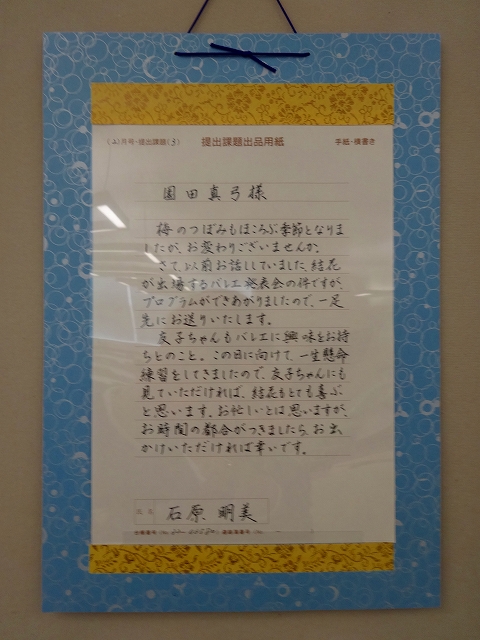 (4)月号・提出課題(3) 提出課題出品用紙 手紙・横書き
園田真弓様
梅のつぼみもほころぶ季節となりま
したが、お変わりございませんか。
さて、以前お話ししていました、結花
が出場するバレエ発表会の件ですが、
プログラムができあがりましたので、一足
先にお送りいたします。
友子ちゃんもバレエに興味をお持
ちとのこと。この日に向けて、一生懸命
練習をしてきましたので、友子ちゃんにも
見ていただければ、結花もとても喜ぶ
と思います。お忙しいとは思いますが、
お時間の都合がつきましたら、お出
かけいただければ幸いです。
氏名 石原明美